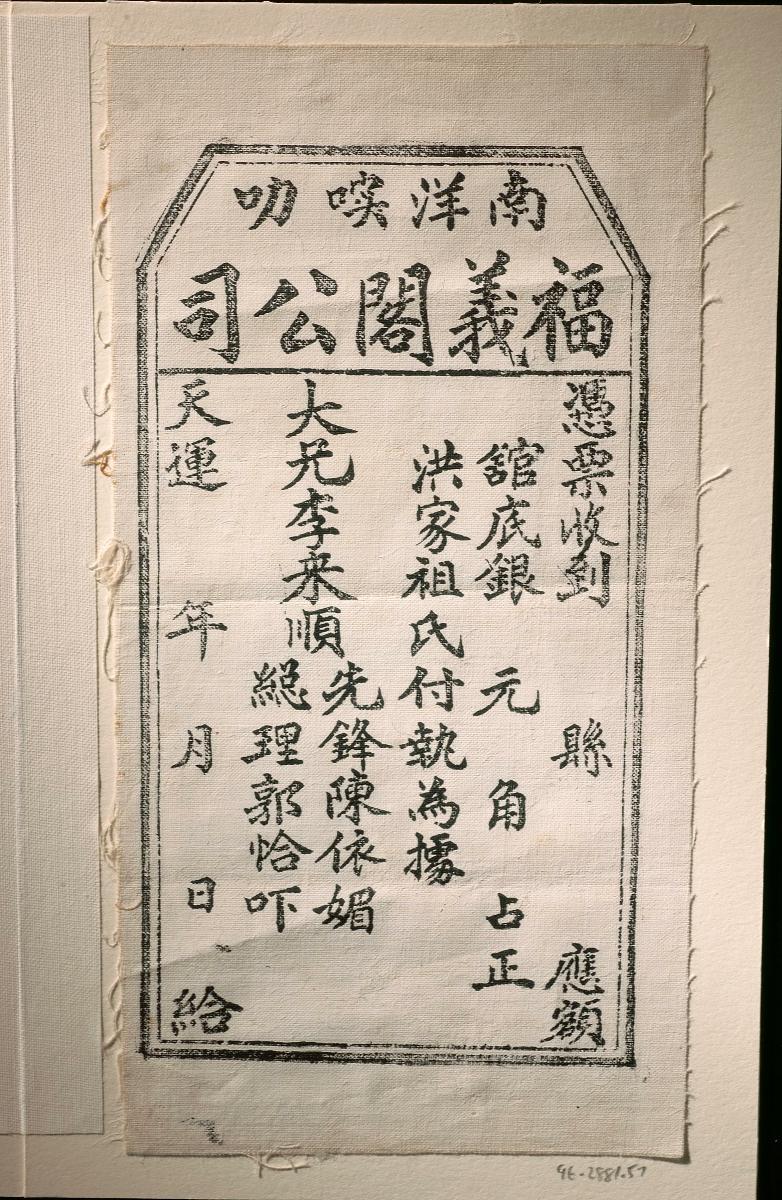 南洋㗝叻
福義閣公司
憑票收到 縣 應額
舘底銀 元 角 占正
洪家祖氏付執為據
大兄李来順
先鋒陳依媚
総理郭恰吓
天運 年 月 日 給
96-2881.57